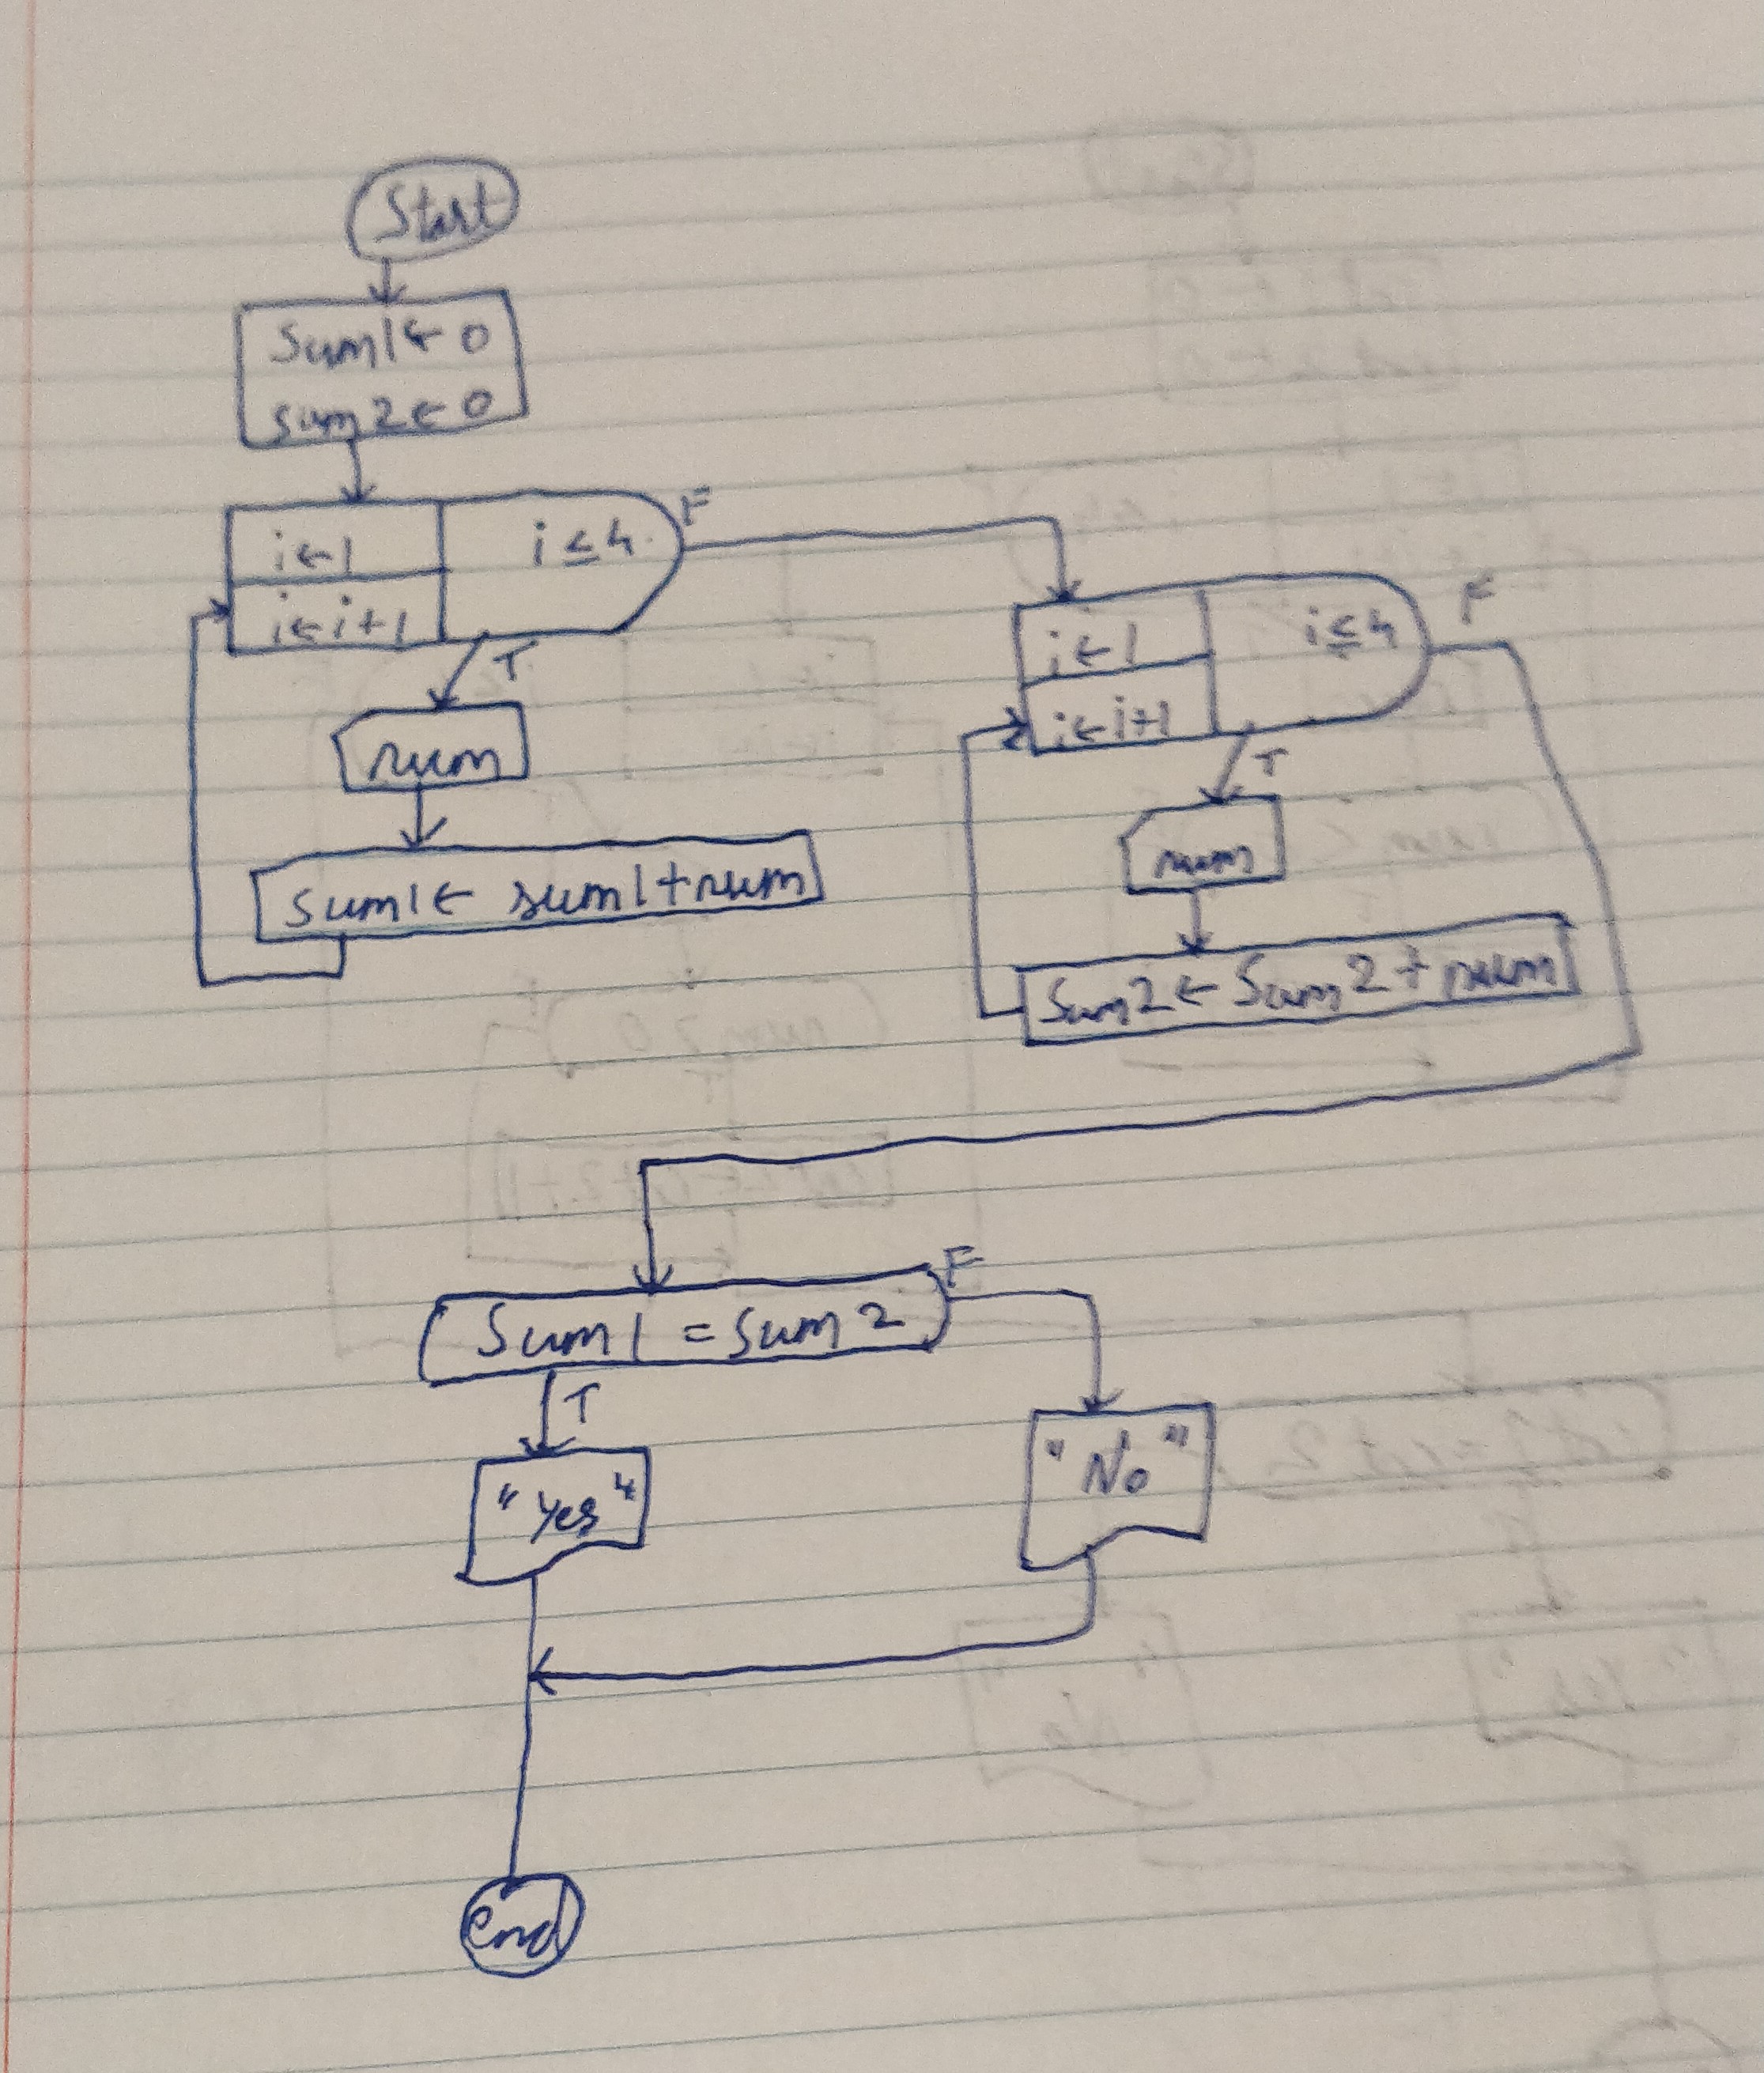 Start
Sum1 ← 0
sum2 ← 0
i ← 1
i ≤ 4
F
i ← i+1
T
num
sum1 ← sum1 + num
i ← 1
i ≤ 4
F
i ← i+1
T
num
Sum2 ← Sum2 + num
Sum1 = sum2
F
T
"Yes"
"No"
end